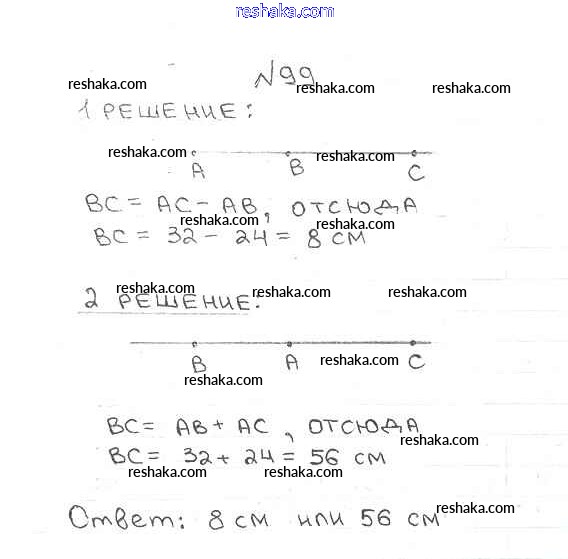 reshaka.com
N99
reshaka.com reshaka.com reshaka.com
1 РЕШЕНИЕ:
reshaka.com reshaka.com
A B C
BC = AC - AB, ОТСЮДА
reshaka.com reshaka.com
BC = 32 - 24 = 8 СМ
reshaka.com reshaka.com reshaka.com
2 РЕШЕНИЕ:
reshaka.com
B A C
reshaka.com
BC = AB + AC, ОТСЮДА
reshaka.com
BC = 32 + 24 = 56 СМ
reshaka.com reshaka.com
Ответ: 8 см или 56 см
reshaka.com